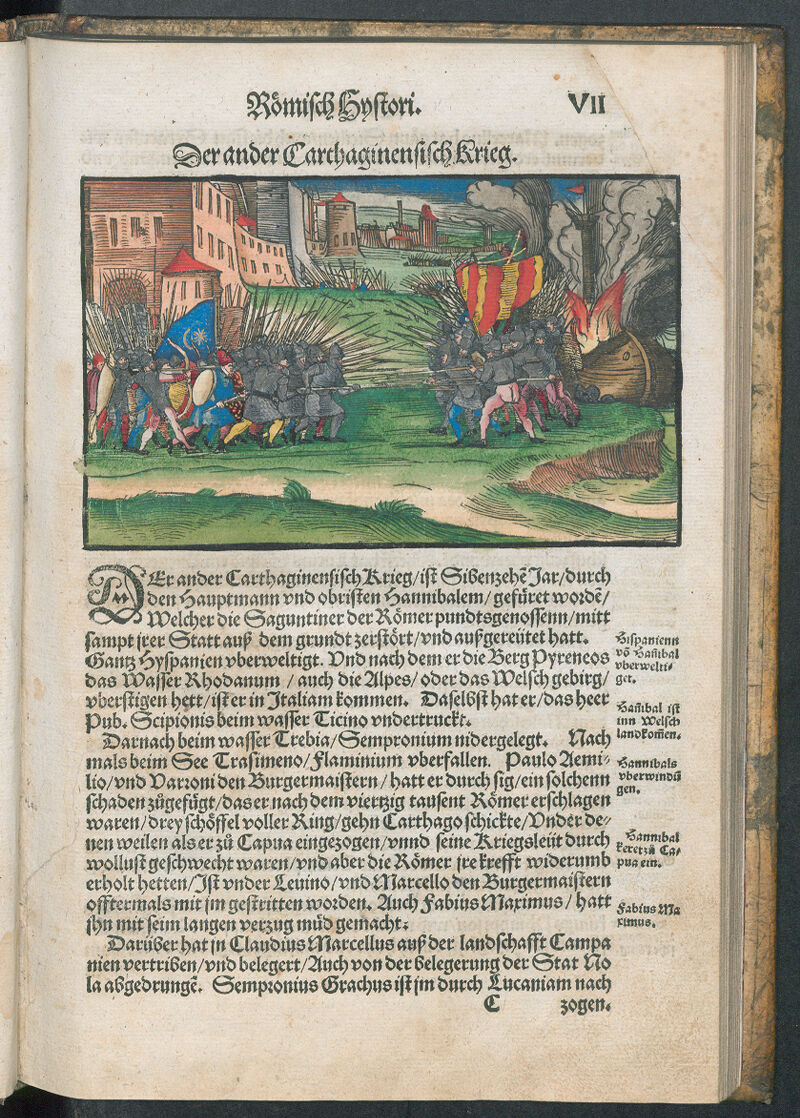 Römisch Hystori. VII
Der ander Carthaginensisch Krieg.
DEr ander Carthaginensisch Krieg/ist Sibenzehẽ Jar/durch
den Hauptmann vnd obristen Hannibalem/gefüret wordẽ/
Welcher die Saguntiner der Römer pundtsgenossenn/mitt
sampt jrer Statt auß dem grundt zerstört/vnd außgereütet hatt.
Gantz Hyspanien vberweltigt. Vnd nach dem er die Berg Pyreneos
das Wasser Rhodanum/auch die Alpes/oder das Welsch gebirg/
vberstigen hett/ist er in Italiam kommen. Daselbst hat er/das heer
Pub. Scipionis beim wasser Ticino vndertruckt.
Hispanienn
võ Hañibal
vberwelti-
get.
Hañibal ist
inn Welsch
land kom̃en.
Darnach beim wasser Trebia/Sempronium nidergelegt. Nach
mals beim See Trasimeno/Flaminium vberfallen. Paulo Aemi-
lio/vnd Varroni den Burgermaistern/hatt er durch sig/ein solchenn
schaden zůgefügt/das er nach dem viertzig tausent Römer erschlagen
waren/drey schöffel voller Ring/gehn Carthago schickte/Vnder de-
nen weilen als er zů Capua eingezogen/vnnd seine Kriegsleüt durch
wollust geschwecht waren/vnd aber die Römer jre krefft widerumb
erholt hetten/Ist vnder Leuino/vnd Marcello den Burgermaistern
offtermals mit jm gestritten worden. Auch Fabius Maximus/hatt
jhn mit seim langen verzug müd gemacht.
Hannibals
vberwindũ
gen.
Hannibal
keret zů Ca-
pua ein.
Fabius Ma
ximus.
Darüber hat jn Claudius Marcellus auß der landschafft Campa
nien vertriben/vnd belegert/Auch von der belegerung der Stat No
la abgedrungẽ. Sempronius Grachus ist jm durch Lucaniam nach
C zogen.